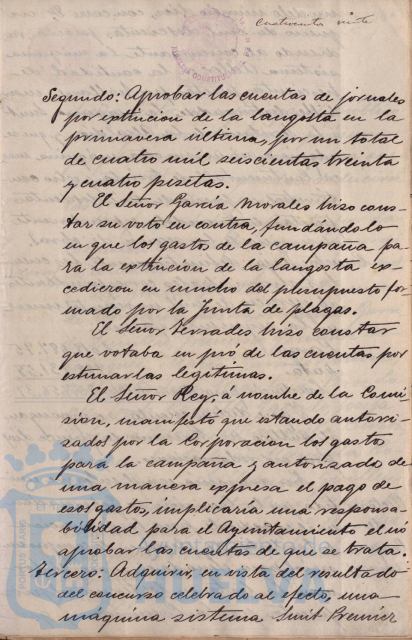 Cuatrocientos veinte
Segundo: Aprobar las cuentas de jornales
por extincion de la langosta en la
primavera última, por un total
de cuatro mil seiscientas treinta
y cuatro pesetas.
El Señor García Morales hizo cons-
tar su voto en contra, fundándolo
en que los gastos de la campaña pa-
ra la extincion de la langosta ex-
cedieron en mucho del presupuesto for-
mado por la Junta de plagas.
El Señor Terrades hizo constar
que votaba en pró de las cuentas por
estimarlas legítimas.
El Señor Rey, á nombre de la Comi-
sion, manifestó que estando autori-
zados por la Corporacion los gastos
para la campaña y autorizado de
una manera expresa el pago de
esos gastos, implicaría una responsa-
bilidad para el Ayuntamiento el no
aprobar las cuentas de que se trata.
Tercero: Adquirir, en vista del resultado
del concurso celebrado al efecto, una
máquina sistema Smit Premier